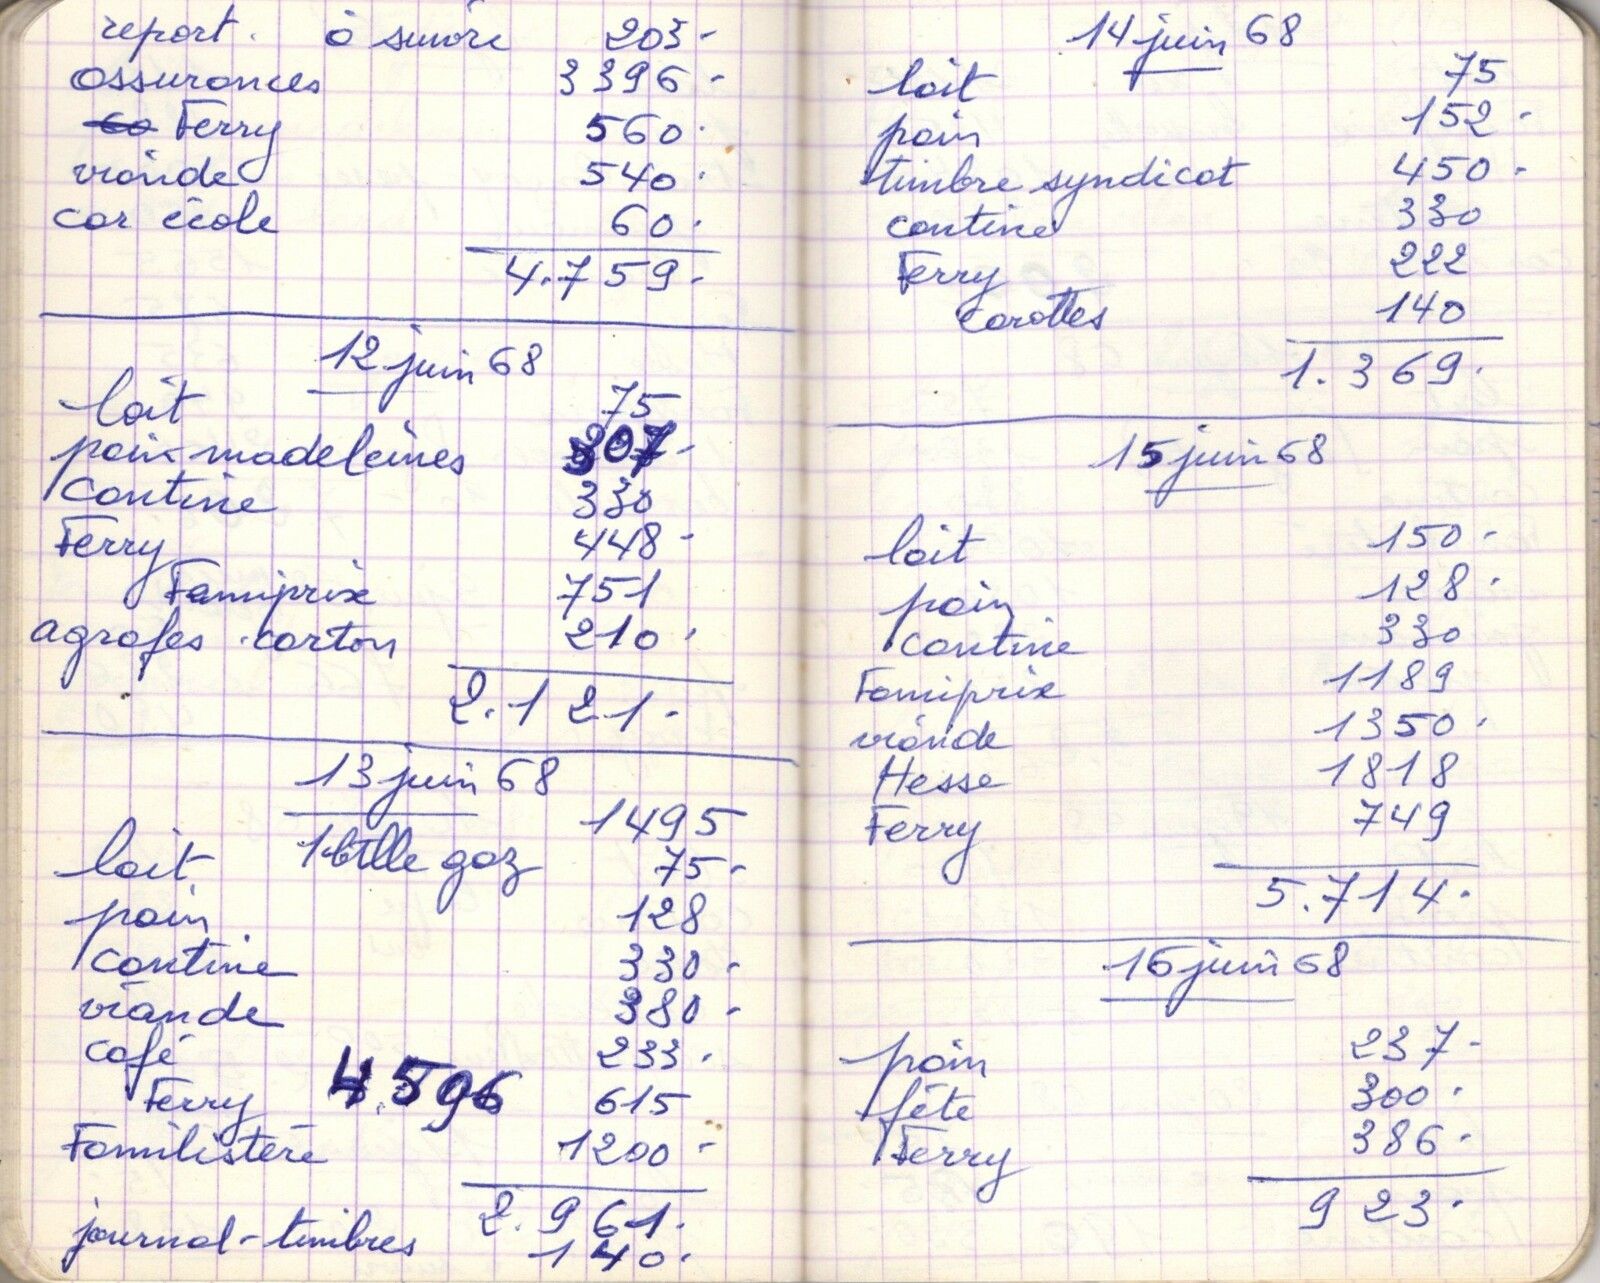 report. à suivre 203-
assurances 3396-
Ferry 560.
viande 540.
car école 60.
4.759.
12 juin 68
lait 75
pain-madeleines 307-
cantine 330
Ferry 448-
Famiprix 751
agrafes.carton 210.
2.121.
13 juin 68
1495
lait 1 btlle gaz 75-
pain 128
cantine 330-
viande 380-
café 233.
Ferry 4.596 615
Familistère 1200-
2.961.
journal-timbres 140.
14 juin 68
lait 75
pain 152-
timbre syndicat 450-
cantine 330
Ferry 222
carottes 140
1.369.
15 juin 68
lait 150-
pain 128.
cantine 330
Famiprix 1189
viande 1350.
Hesse 1818
Ferry 749
5.714.
16 juin 68
pain 237-
fête 300.
Ferry 386.
923.